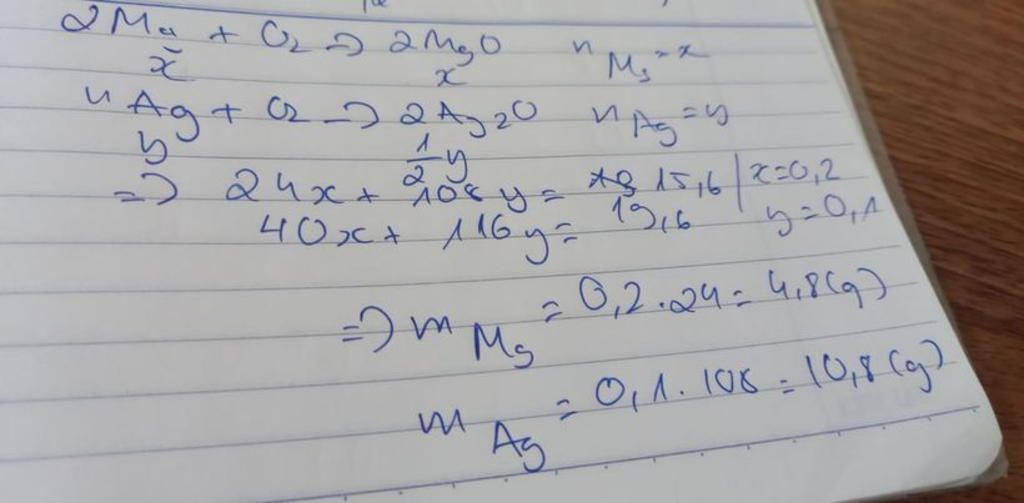 2Mg + O₂ => 2MgO n Mg = x
x x
4Ag + O₂ -> 2Ag₂O n Ag = y
y 1/2 y
=> 24x + 108y = 15,6 | x=0,2
40x + 116y = 19,6 y=0,1
=> m Mg = 0,2.24 = 4,8(g)
m Ag = 0,1.108 = 10,8(g)